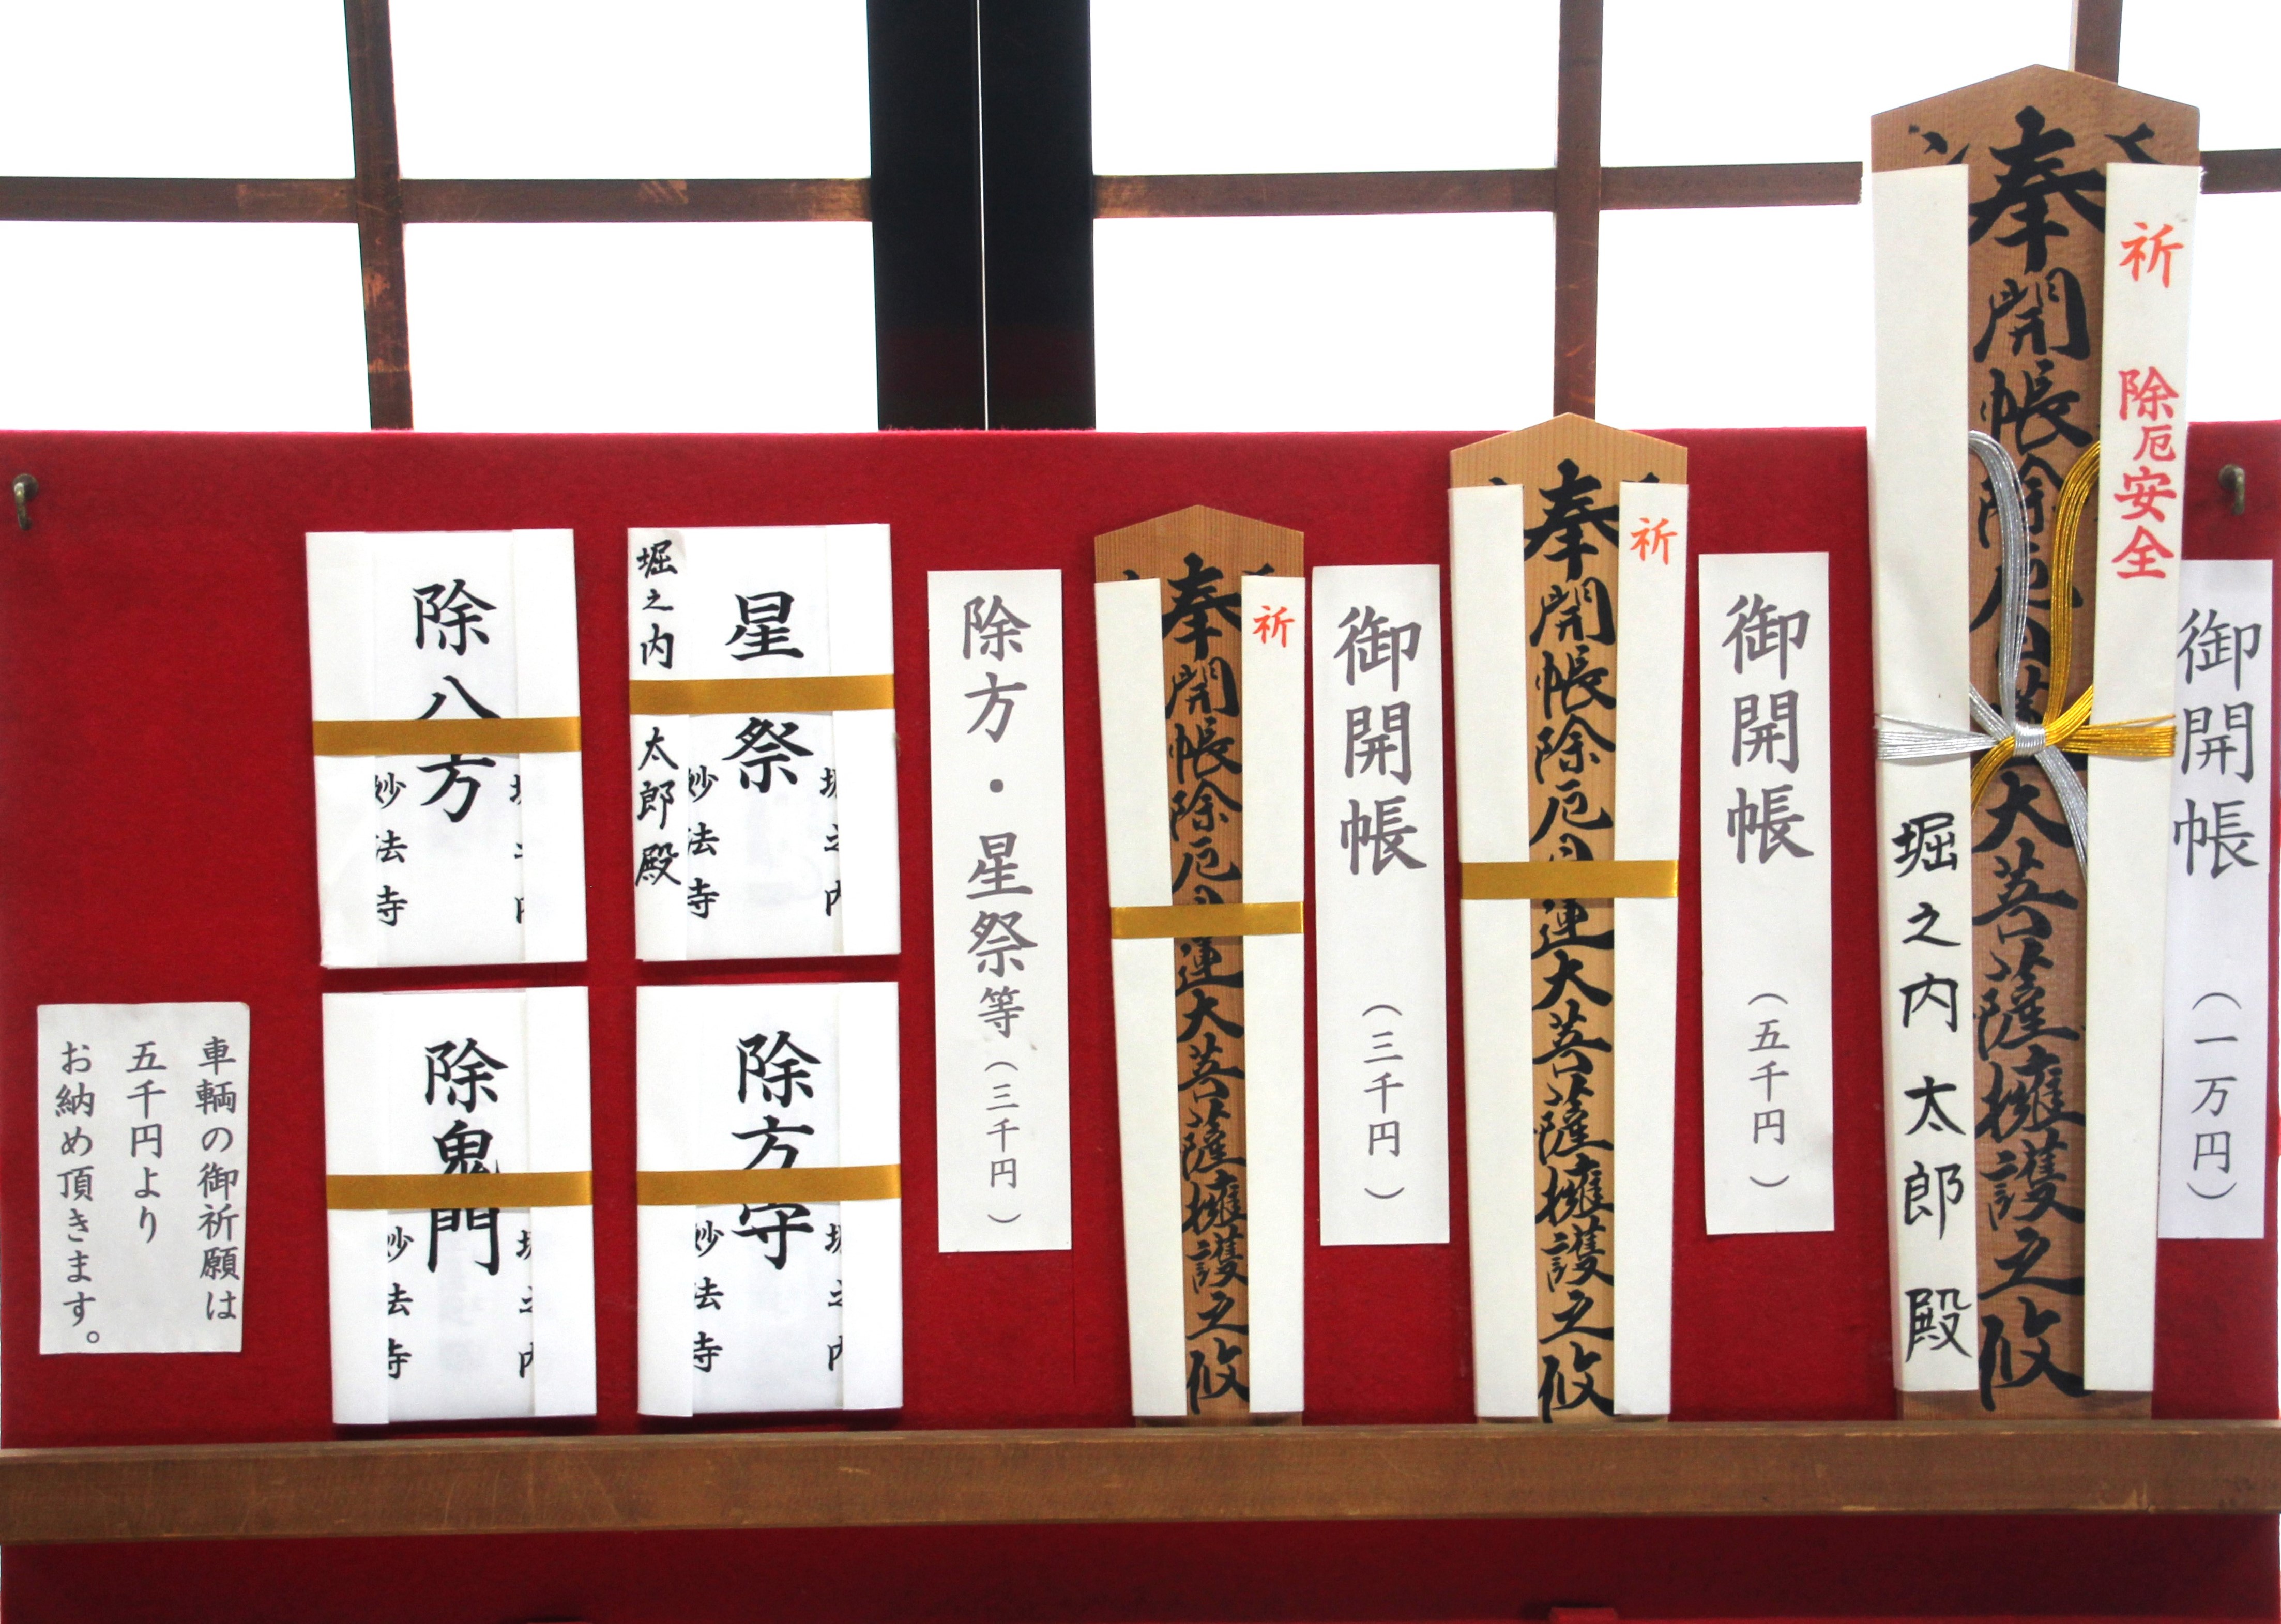 御開帳
（一万円）
祈 除厄安全
奉開帳除厄
大菩薩擁護之攸
堀之内太郎殿
御開帳
（五千円）
祈
奉開帳除厄日蓮大菩薩擁護之攸
御開帳
（三千円）
祈
奉開帳除厄日蓮大菩薩擁護之攸
除方・星祭等（三千円）
堀之内
星祭
妙法寺
堀之内太郎殿
除方守
堀之内
妙法寺
除八方
堀之内
妙法寺
除鬼門
堀之内
妙法寺
車輌の御祈願は
五千円より
お納め頂きます。